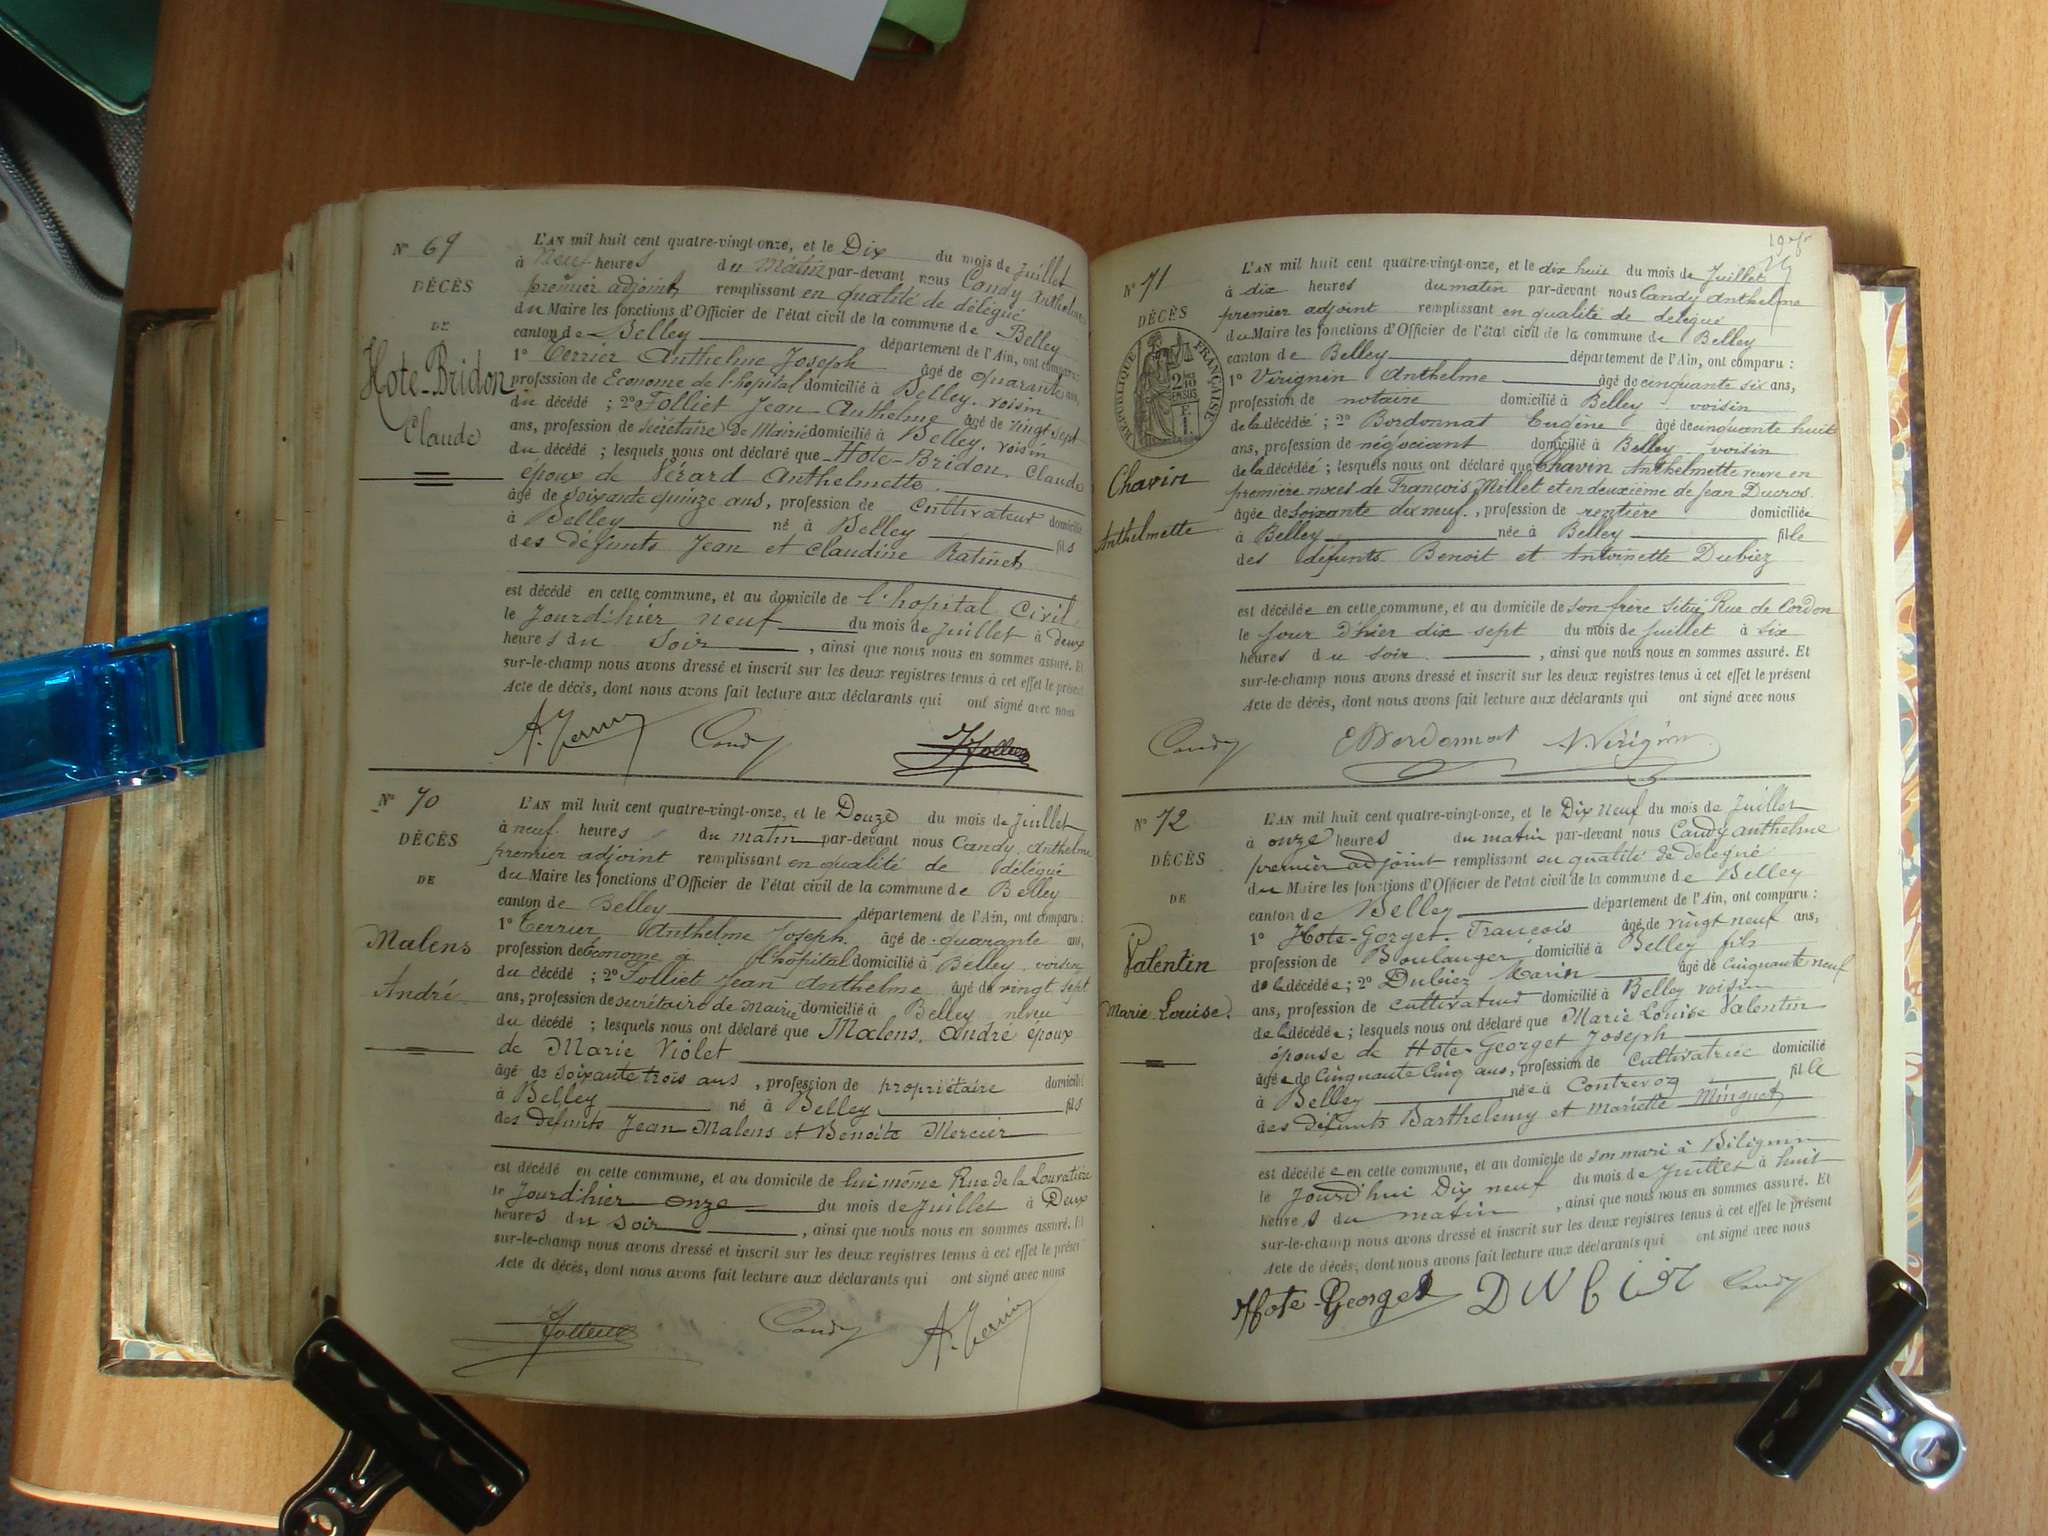 N° 69
DÉCÈS
DE
Hote-Bridon
Claude
L'AN mil huit cent quatre-vingt-onze, et le Dix du mois de Juillet
à Neuf heures du Matin par-devant nous Candy Anthelme
premier adjoint, remplissant en qualité de délégué
du Maire les fonctions d'Officier de l'état civil de la commune de Belley
canton de Belley département de l'Ain, ont comparu :
1° Terrier Anthelme Joseph âgé de quarante ans,
profession de Econome de l'hopital domicilié à Belley. voisin
du décédé ; 2° Folliet Jean Anthelme âgé de vingt sept
ans, profession de secrétaire de Mairie domicilié à Belley. voisin
du décédé ; lesquels nous ont déclaré que Hote-Bridon. Claude
époux de Vérard Anthelmette.
âgé de soixante quinze ans, profession de cultivateur domicilié
à Belley né à Belley fils
des défunts Jean et Claudine Ratinet
est décédé en cette commune, et au domicile de l'hopital Civil
le Jourd'hier neuf du mois de Juillet à deux
heures du soir , ainsi que nous nous en sommes assuré. Et
sur-le-champ nous avons dressé et inscrit sur les deux registres tenus à cet effet le présent
Acte de décès, dont nous avons fait lecture aux déclarants qui ont signé avec nous
Candy
N° 70
DÉCÈS
DE
Malens
André
L'AN mil huit cent quatre-vingt-onze, et le Douze du mois de Juillet
à neuf heures du matin par-devant nous Candy Anthelme
premier adjoint remplissant en qualité de délégué
du Maire les fonctions d'Officier de l'état civil de la commune de Belley
canton de Belley département de l'Ain, ont comparu :
1° Terrier Anthelme Joseph. âgé de quarante ans,
profession de Econome à l'hôpital domicilié à Belley. voisin
du décédé ; 2° Folliet Jean Anthelme âgé de vingt sept
ans, profession de secrétaire de Mairie domicilié à Belley neveu
du décédé ; lesquels nous ont déclaré que Malens. André époux
de Marie Violet
âgé de soixante trois ans , profession de propriétaire domicilié
à Belley né à Belley fils
des défunts Jean Malens et Benoite Mercier
est décédé en cette commune, et au domicile de lui même Rue de la Louvatière
le Jourd'hier onze du mois de Juillet à Deux
heures du soir , ainsi que nous nous en sommes assuré. Et
sur-le-champ nous avons dressé et inscrit sur les deux registres tenus à cet effet le présent
Acte de décès, dont nous avons fait lecture aux déclarants qui ont signé avec nous
Candy
N° 71
DÉCÈS
RÉPUBLIQUE FRANÇAISE
Chavin
Anthelmette
L'AN mil huit cent quatre-vingt-onze, et le dix huit du mois de Juillet
à dix heures du matin par-devant nous Candy Anthelme
premier adjoint remplissant en qualité de délégué
du Maire les fonctions d'Officier de l'état civil de la commune de Belley
canton de Belley département de l'Ain, ont comparu :
1° Virignin Anthelme âgé de cinquante six ans,
profession de notaire domicilié à Belley voisin
de la décédée ; 2° Bordonnat Eugène âgé de cinquante huit
ans, profession de négociant domicilié à Belley voisin
de la décédée ; lesquels nous ont déclaré que Chavin Anthelmette veuve en
première noces de François Millet et en deuxième de Jean Ducros.
âgée de soixante dix neuf. , profession de rentière domiciliée
à Belley née à Belley fille
des défunts Benoit et Antoinette Dubiez
est décédée en cette commune, et au domicile de son frère situé Rue de Cordon
le jour d'hier dix sept du mois de Juillet à six
heures du soir , ainsi que nous nous en sommes assuré. Et
sur-le-champ nous avons dressé et inscrit sur les deux registres tenus à cet effet le présent
Acte de décès, dont nous avons fait lecture aux déclarants qui ont signé avec nous
Candy E Bordonnat A. Virignin
N° 72
DÉCÈS
DE
Valentin
Marie Louise.
L'AN mil huit cent quatre-vingt-onze, et le Dix neuf du mois de Juillet
à onze heures du matin par-devant nous Candy anthelme
premier adjoint remplissant en qualité de délégué
du Maire les fonctions d'Officier de l'état civil de la commune de Belley
canton de Belley département de l'Ain, ont comparu :
1° Hote-Gorget. François âgé de vingt neuf ans,
profession de Boulanger domicilié à Belley fils
de la décédée ; 2° Dubiez Marin âgé de Cinquante neuf
ans, profession de cultivateur domicilié à Belley voisin
de la décédée ; lesquels nous ont déclaré que Marie Louise Valentin
épouse de Hote-Georget Joseph
âgée de Cinquante Cinq ans, profession de cultivatrice domicilié
à Belley née à Contrevoz fille
des défunts Barthelemy et Mariette Minguet
est décédée en cette commune, et au domicile de son mari à Bilignin
le Jourd'hui Dix neuf du mois de Juillet à huit
heures du matin , ainsi que nous nous en sommes assuré. Et
sur-le-champ nous avons dressé et inscrit sur les deux registres tenus à cet effet le présent
Acte de décès, dont nous avons fait lecture aux déclarants qui ont signé avec nous
Hote-Georget Candy